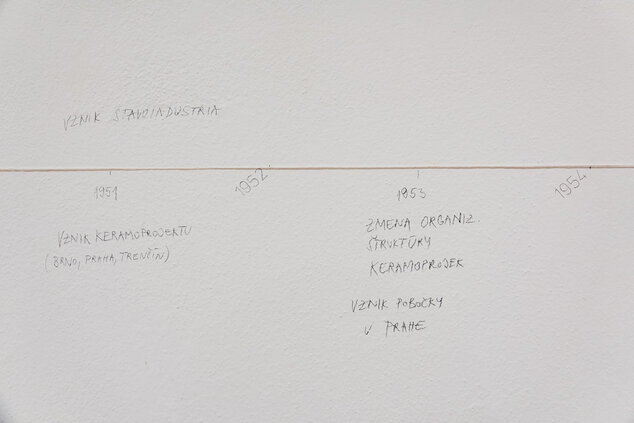 VZNIK STAVOINDUSTRIA
1951
1952
1953
1954
VZNIK KERAMOPROJEKTU
(BRNO, PRAHA, TRENČÍN)
ZMENA ORGANIZ.
ŠTRUKTÚRY
KERAMOPROJEK
VZNIK POBOČKY
V PRAHE